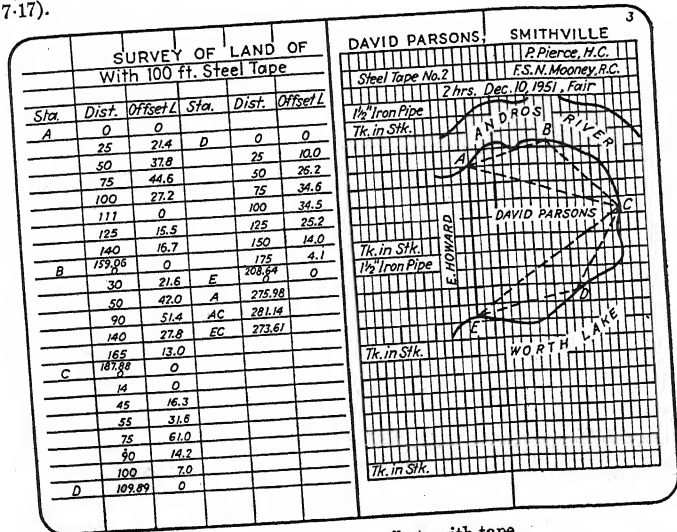 7·17).
3
SURVEY OF LAND OF
With 100 ft. Steel Tape
Sta. Dist. Offset L Sta. Dist. Offset L
A 0 0 D 0 0
25 21.4 25 10.0
50 37.8 50 26.2
75 44.6 75 34.6
100 27.2 100 34.5
111 0 125 25.2
125 15.5 150 14.0
140 16.7 175 4.1
B 159.06 0 E 208.64 0
0 0
30 21.6 A 275.98
50 42.0 AC 281.14
90 51.4 EC 273.61
140 27.8
165 13.0
C 187.88 0
0
14 0
45 16.3
55 31.6
75 61.0
90 14.2
100 7.0
D 109.89 0
DAVID PARSONS, SMITHVILLE
P. Pierce, H.C.
Steel Tape No.2 F.S.N. Mooney, R.C.
2 hrs. Dec. 10, 1951, Fair
1½" Iron Pipe
Tk. in Stk.
ANDROS RIVER
A
B
C
DAVID PARSONS
E. HOWARD
Tk. in Stk.
1½" Iron Pipe
D
E
WORTH LAKE
Tk. in Stk.
Tk. in Stk.
with tape